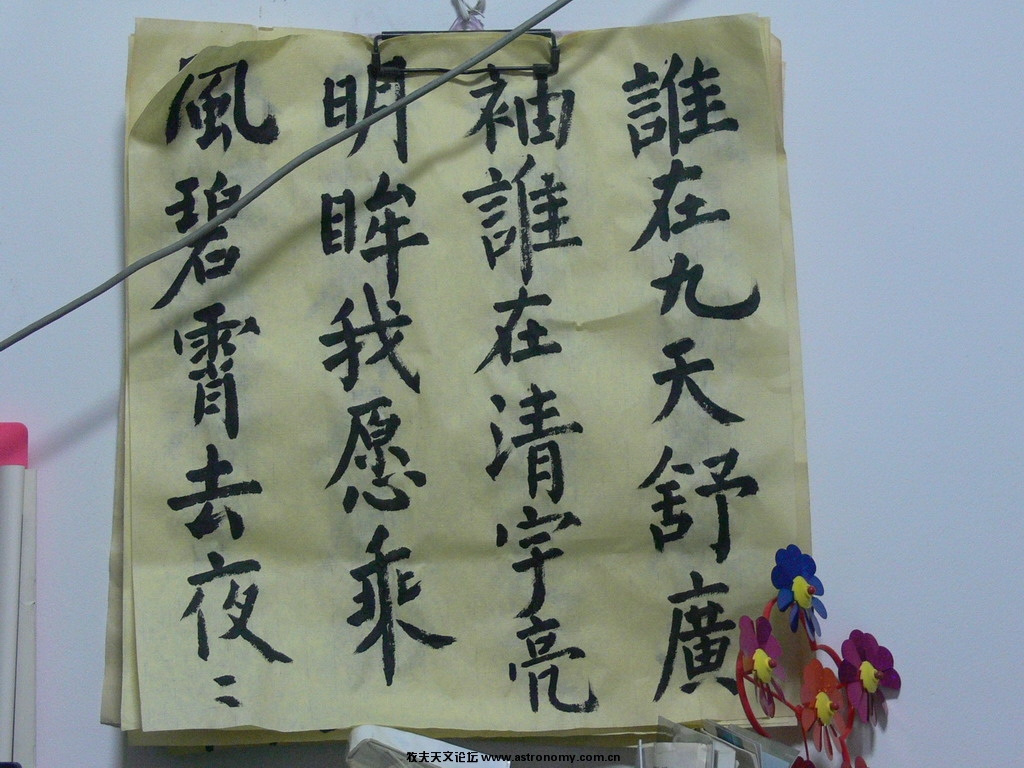 誰在九天舒廣
袖誰在清宇亮
明眸我愿乘
風碧霄去夜二
牧夫天文论坛 www.astronomy.com.cn